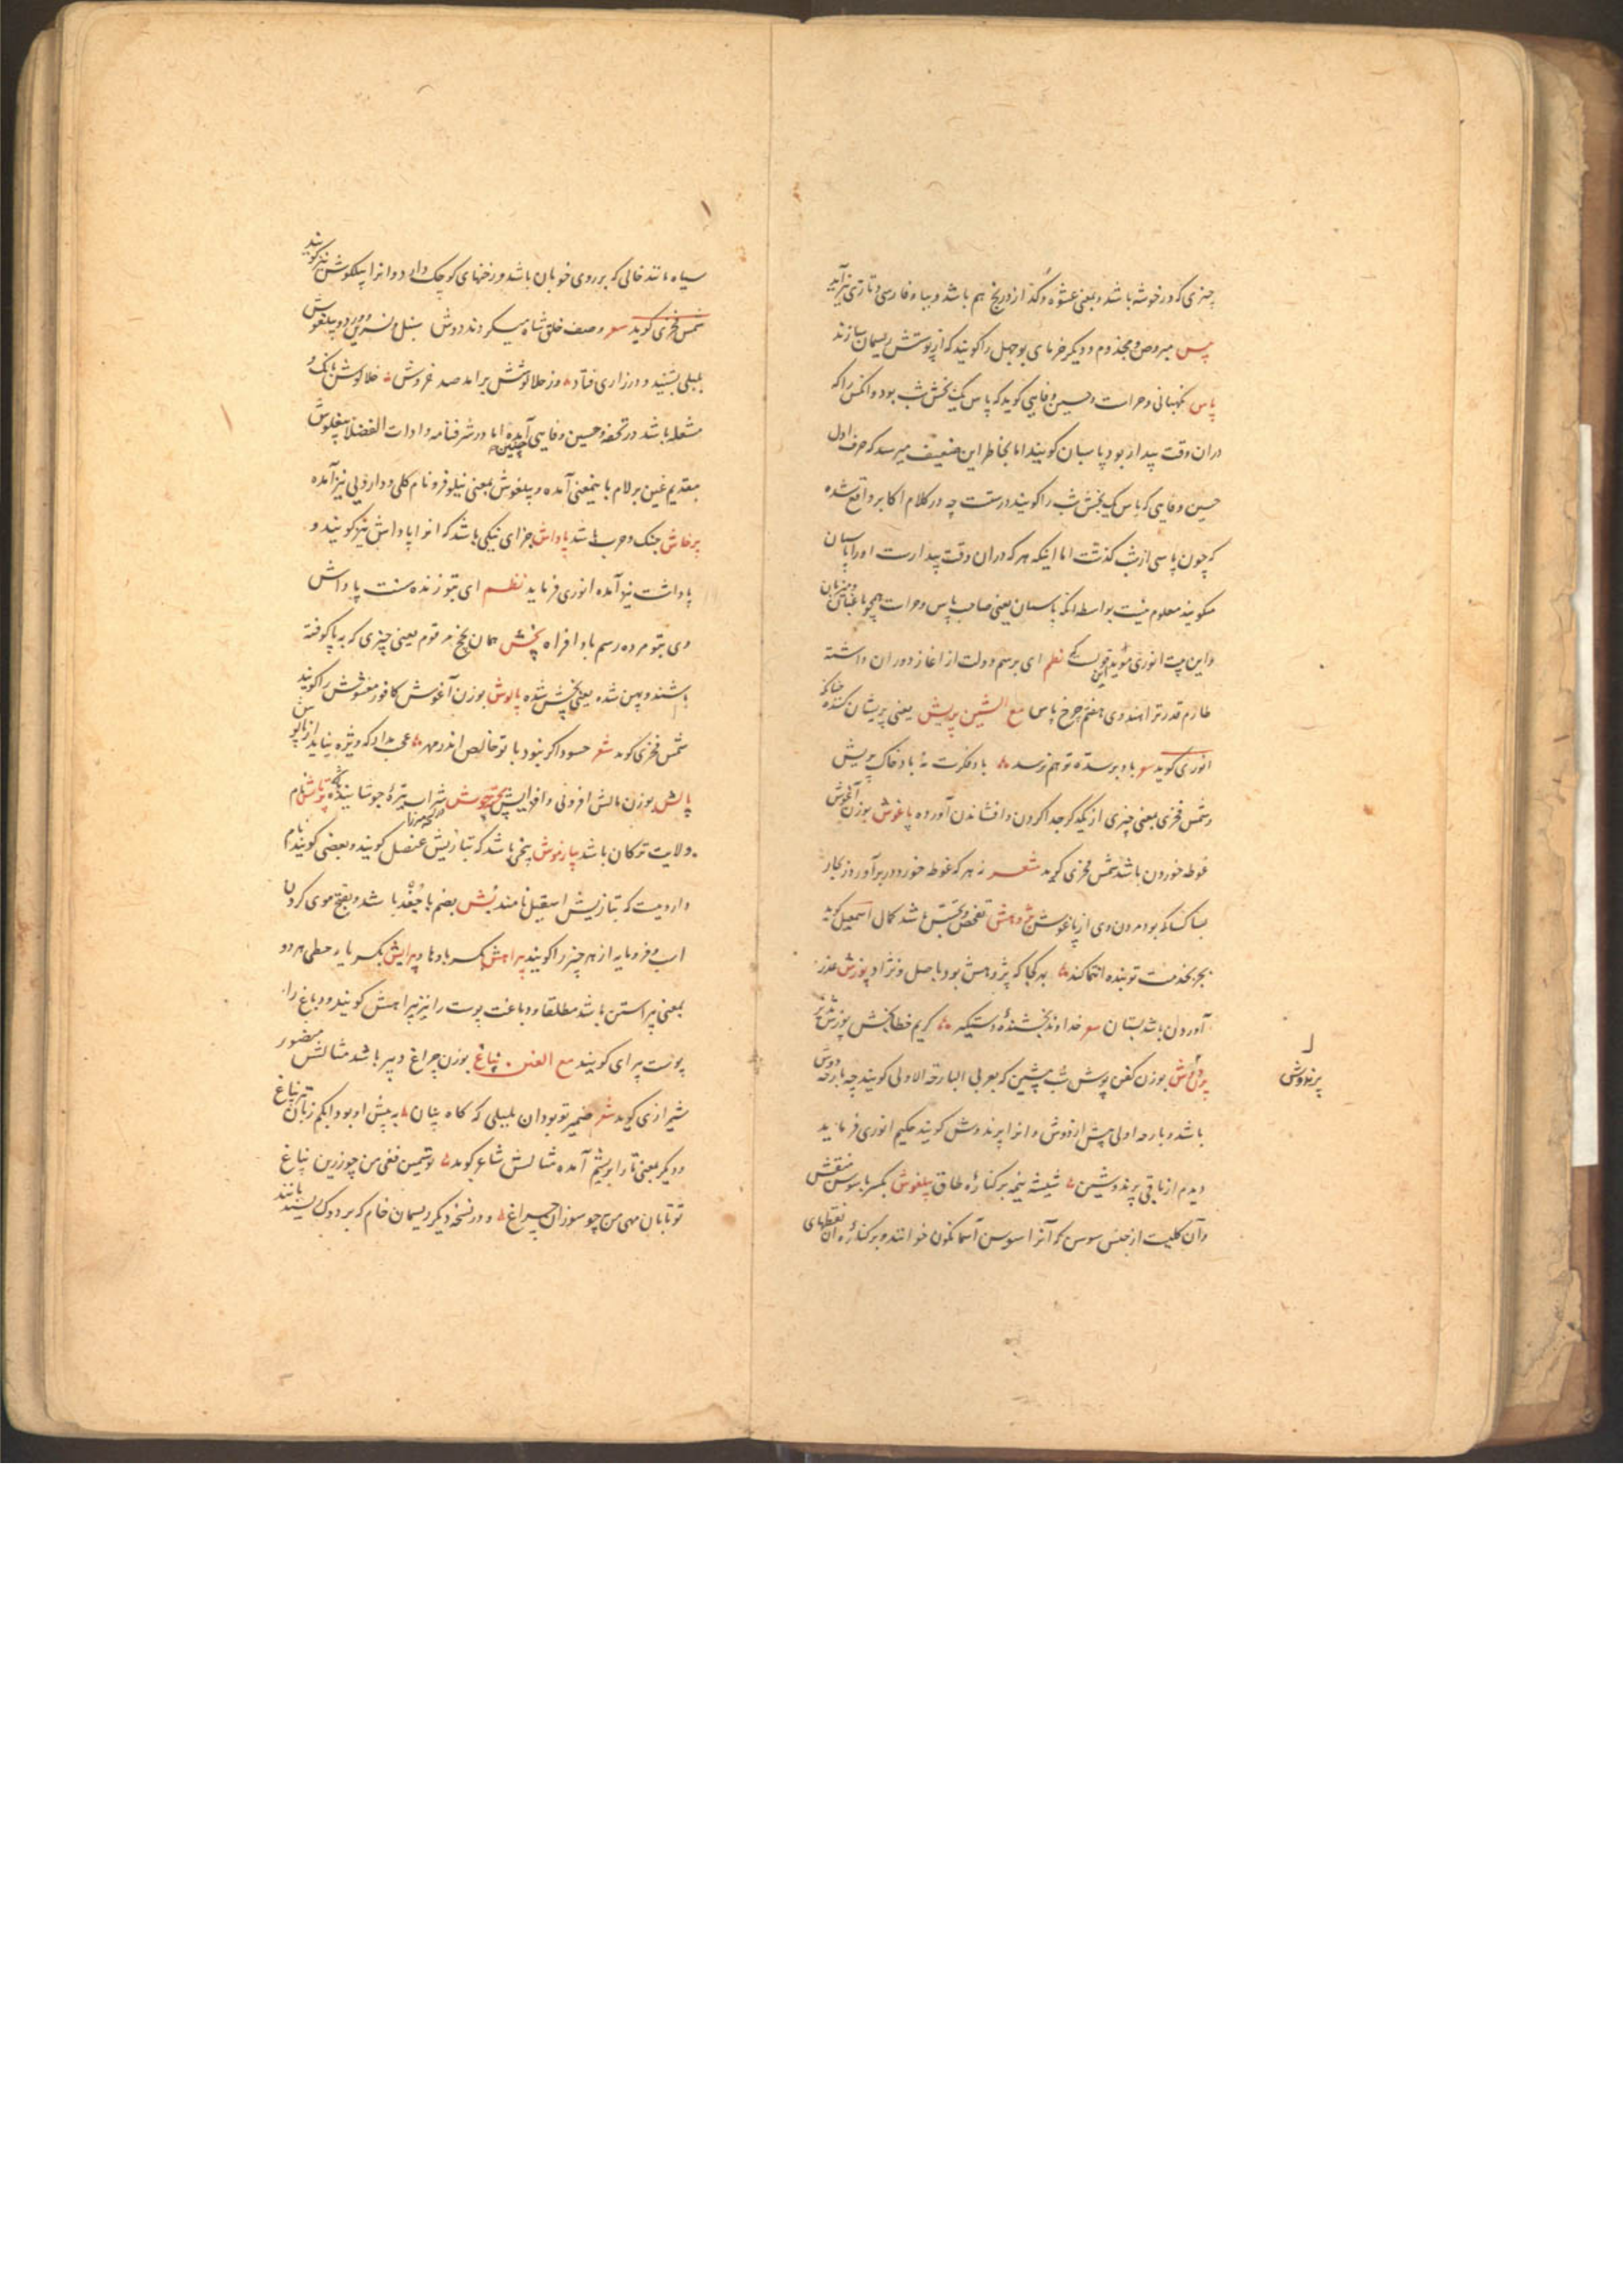 چیزی که در خوشه باشد و بمعنی عشوه و گداز و رنج هم باشد و بباء فارسی و تازی نیز آید
پیس مبروص و مجذوم و دیگر خرمای بوجهل را کویند که از پوستش ریسمان سازند
پاس نکهبانی و حراست و حسین وفایی کوید که پاس یک بخش شب بود و آنکس را که
در آن وقت بیدار بود پاسبان کویند اما بخاطر این ضعیف میرسد که حرف اول
حسین وفایی که پاس یک بخش شب را کویند درستست چه در کلام اکابر واقع شده
که چون پاسی از شب کذشت اما اینکه هر که در آن وقت بیدارست او را پاسبان
میکویند معلوم نیست بواسطه آنکه پاسبان یعنی صاحب پاس و حراست همچو باغبان و میزبان
و این بیت انوری مؤید این قولست نظم ای برسم دولت از آغاز دوران داشته
طارم قدر ترا هندوی هفتم چرخ پاس مع الشین پریش یعنی پریشان کننده چنانکه
انوری کوید شعر باد بر سده تو هم نرسد باد فکرت نه باد خاک پریش
و شمس فخری بمعنی چیزی از یکدیگر جدا کردن و افشاندن آورده پاغوش بوزن آغوش
غوطه خوردن باشد شمس فخری کوید شعر هر که غوطه خورد در بر آورد زکار
بسا کسا که بود مردن وی از پاغوش پژوهش تفحص و تجسس باشد کمال اسمعیل کوید
بجز بخدمت تو بنده التجا نکند بهر کجا که پژوهش بود باصل و نژاد پوزش عذر
آوردن باشد بستان شعر خداوند بخشنده دستکیر کریم خطابخش پوزش پذیر
پرندوش بوزن کفن پوش شب پیشین که بعربی البارحة الاولی کویند چه بارحه دوش
پرندوش
باشد و بارحه اولی پیش از دوش و آنرا پرندوش کویند حکیم انوری فرماید
دیدم از باقی پرندوشین شیشه نیمه بر کناره طاق پیلغوش بکسر با سوسن منقش
و آن کلیست از جنس سوسن که آنرا سوسن آسمانکون خوانند و بر کناره آن نقطهای
سیاه مانند خالی که بر روی خوبان باشد و رخنهای کوچک دارد و آنرا پیلکوش نیز کویند
شمس فخری کوید شعر وصف خلق شاه میکردند دوش سنبل و نسرین و ورد و پیلغوش
بلبلی بشنید و در زاری فتاد وز خلالوشش برآمد صد خروش خلالوش بانک و
مشعله باشد در تحفه و حسین وفایی چنین آمده اما در شرفنامه و ادات الفضلا پیغلوش
بتقدیم غین بر لام باینمعنی آمده و پیلغوش بمعنی نیلوفر و نام کلی و دارویی نیز آمده
پرخاش جنک و حرب باشد پاداش جزای نیکی باشد که آنرا پاداشن نیز کویند و
پاداشت نیز آمده انوری فرماید نظم ای بتو زنده سنت پاداش
وی بتو مرده رسم بادافراه پخش همان پخج مرقوم یعنی چیزی که به پا کوفته
باشند و پهن شده یعنی پخش شده پالوش بوزن آغوش کافور مغشوش را کویند
شمس فخری کوید شعر حسود اکر نبود با تو خالص اندر مهر عجب مدار که ویژه نیاید از پالوش
پالش بوزن مالش افزونی و افزایش پختجوش شراب تیره جوشانیده پرتاش نام
ولایت ترکان باشد پیازموش بیخی باشد که بتازیش عنصل کویند و بعضی کویند نام
دارویست که بتازیش اسقیل نامند پش بضم با جغد باشد و بفتح موی کردن
اسب و فرومایه از هر چیز را کویند پیراهش بکسر با و ها و پیرایش بکسر یاء حطی هر دو
بمعنی پیراستن باشد مطلقا و دباغت پوست را نیز پیراهش کویند و دباغ را
پوست پیرای کویند مع الغین پناغ بوزن چراغ دبیر باشد مثالش منصور
شیرازی کوید شعر ضمیر تو بود آن بلبلی که کاه بیان به پیش او بود ابکم زبان تیر پناغ
و دیکر بمعنی تار ابریشم آمده مثالش شاعر کوید تو سیمین فغی من چو زرین پناغ
تو تابان مهی من چو سوزان چراغ و در نسخه دیکر ریسمان خام که بر دوک ریسیده باشند